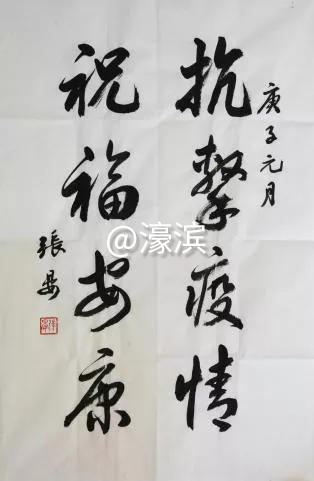 庚子元月
抗击疫情
祝福安康
張晏
@濠滨